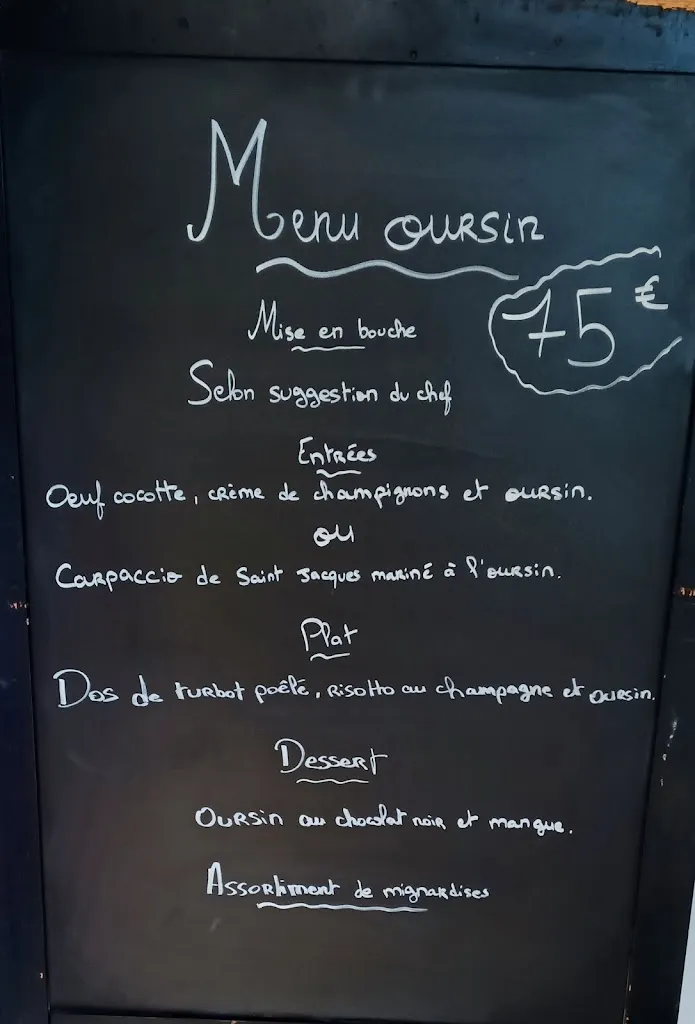 Menu oursin
75 €
Mise en bouche
Selon suggestion du chef
Entrées
Oeuf cocotte, crème de champignons et oursin.
ou
Carpaccio de Saint Jacques mariné à l'oursin.
Plat
Dos de turbot poêlé, risotto au champagne et oursin.
Dessert
Oursin au chocolat noir et mangue.
Assortiment de mignardises